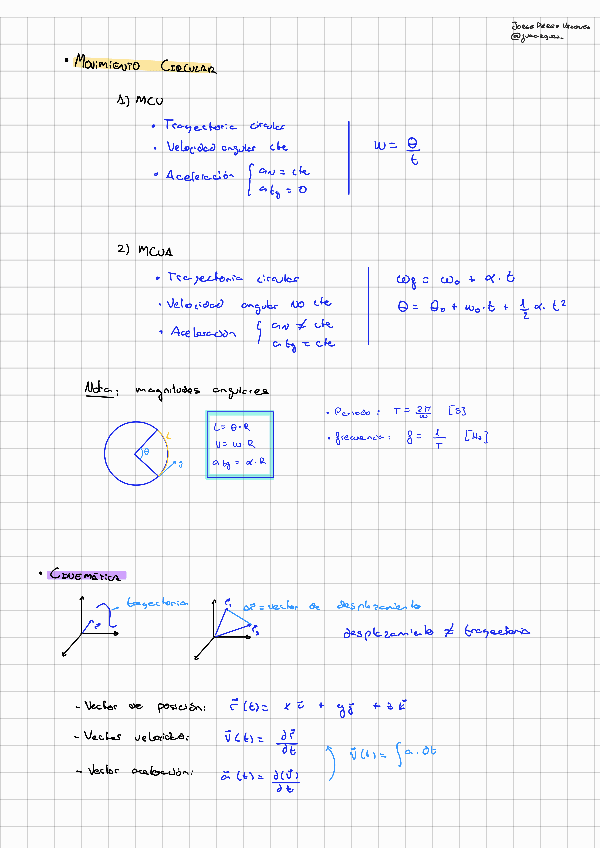 • MOVIMIENTO CIRCULAR
1) MCU
• Trayectoria circular
• Velocidad angular cte
• Aceleración { aN = cte
atg = 0
ω = θ / t
2) MCUA
• Trayectoria circular
• Velocidad angular NO cte
• Aceleración { aN ≠ cte
atg = cte
ωf = ω0 + α · t
θ = θ0 + ω0 · t + 1/2 α · t²
Nota: magnitudes angulares
L
θ
L = θ · R
v = ω · R
atg = α · R
• Periodo: T = 2π/ω [s]
• frecuencia: f = 1/T [Hz]
• CINEMÁTICA
trayectoria
Δr = vector de desplazamiento
desplazamiento ≠ trayectoria
- Vector de posición: r⃗(t) = x i⃗ + y j⃗ + z k⃗
- Vector velocidad: v⃗(t) = ∂r⃗/∂t
v⃗(t) = ∫ a · ∂t
- Vector aceleración: a⃗(t) = ∂(v⃗)/∂t